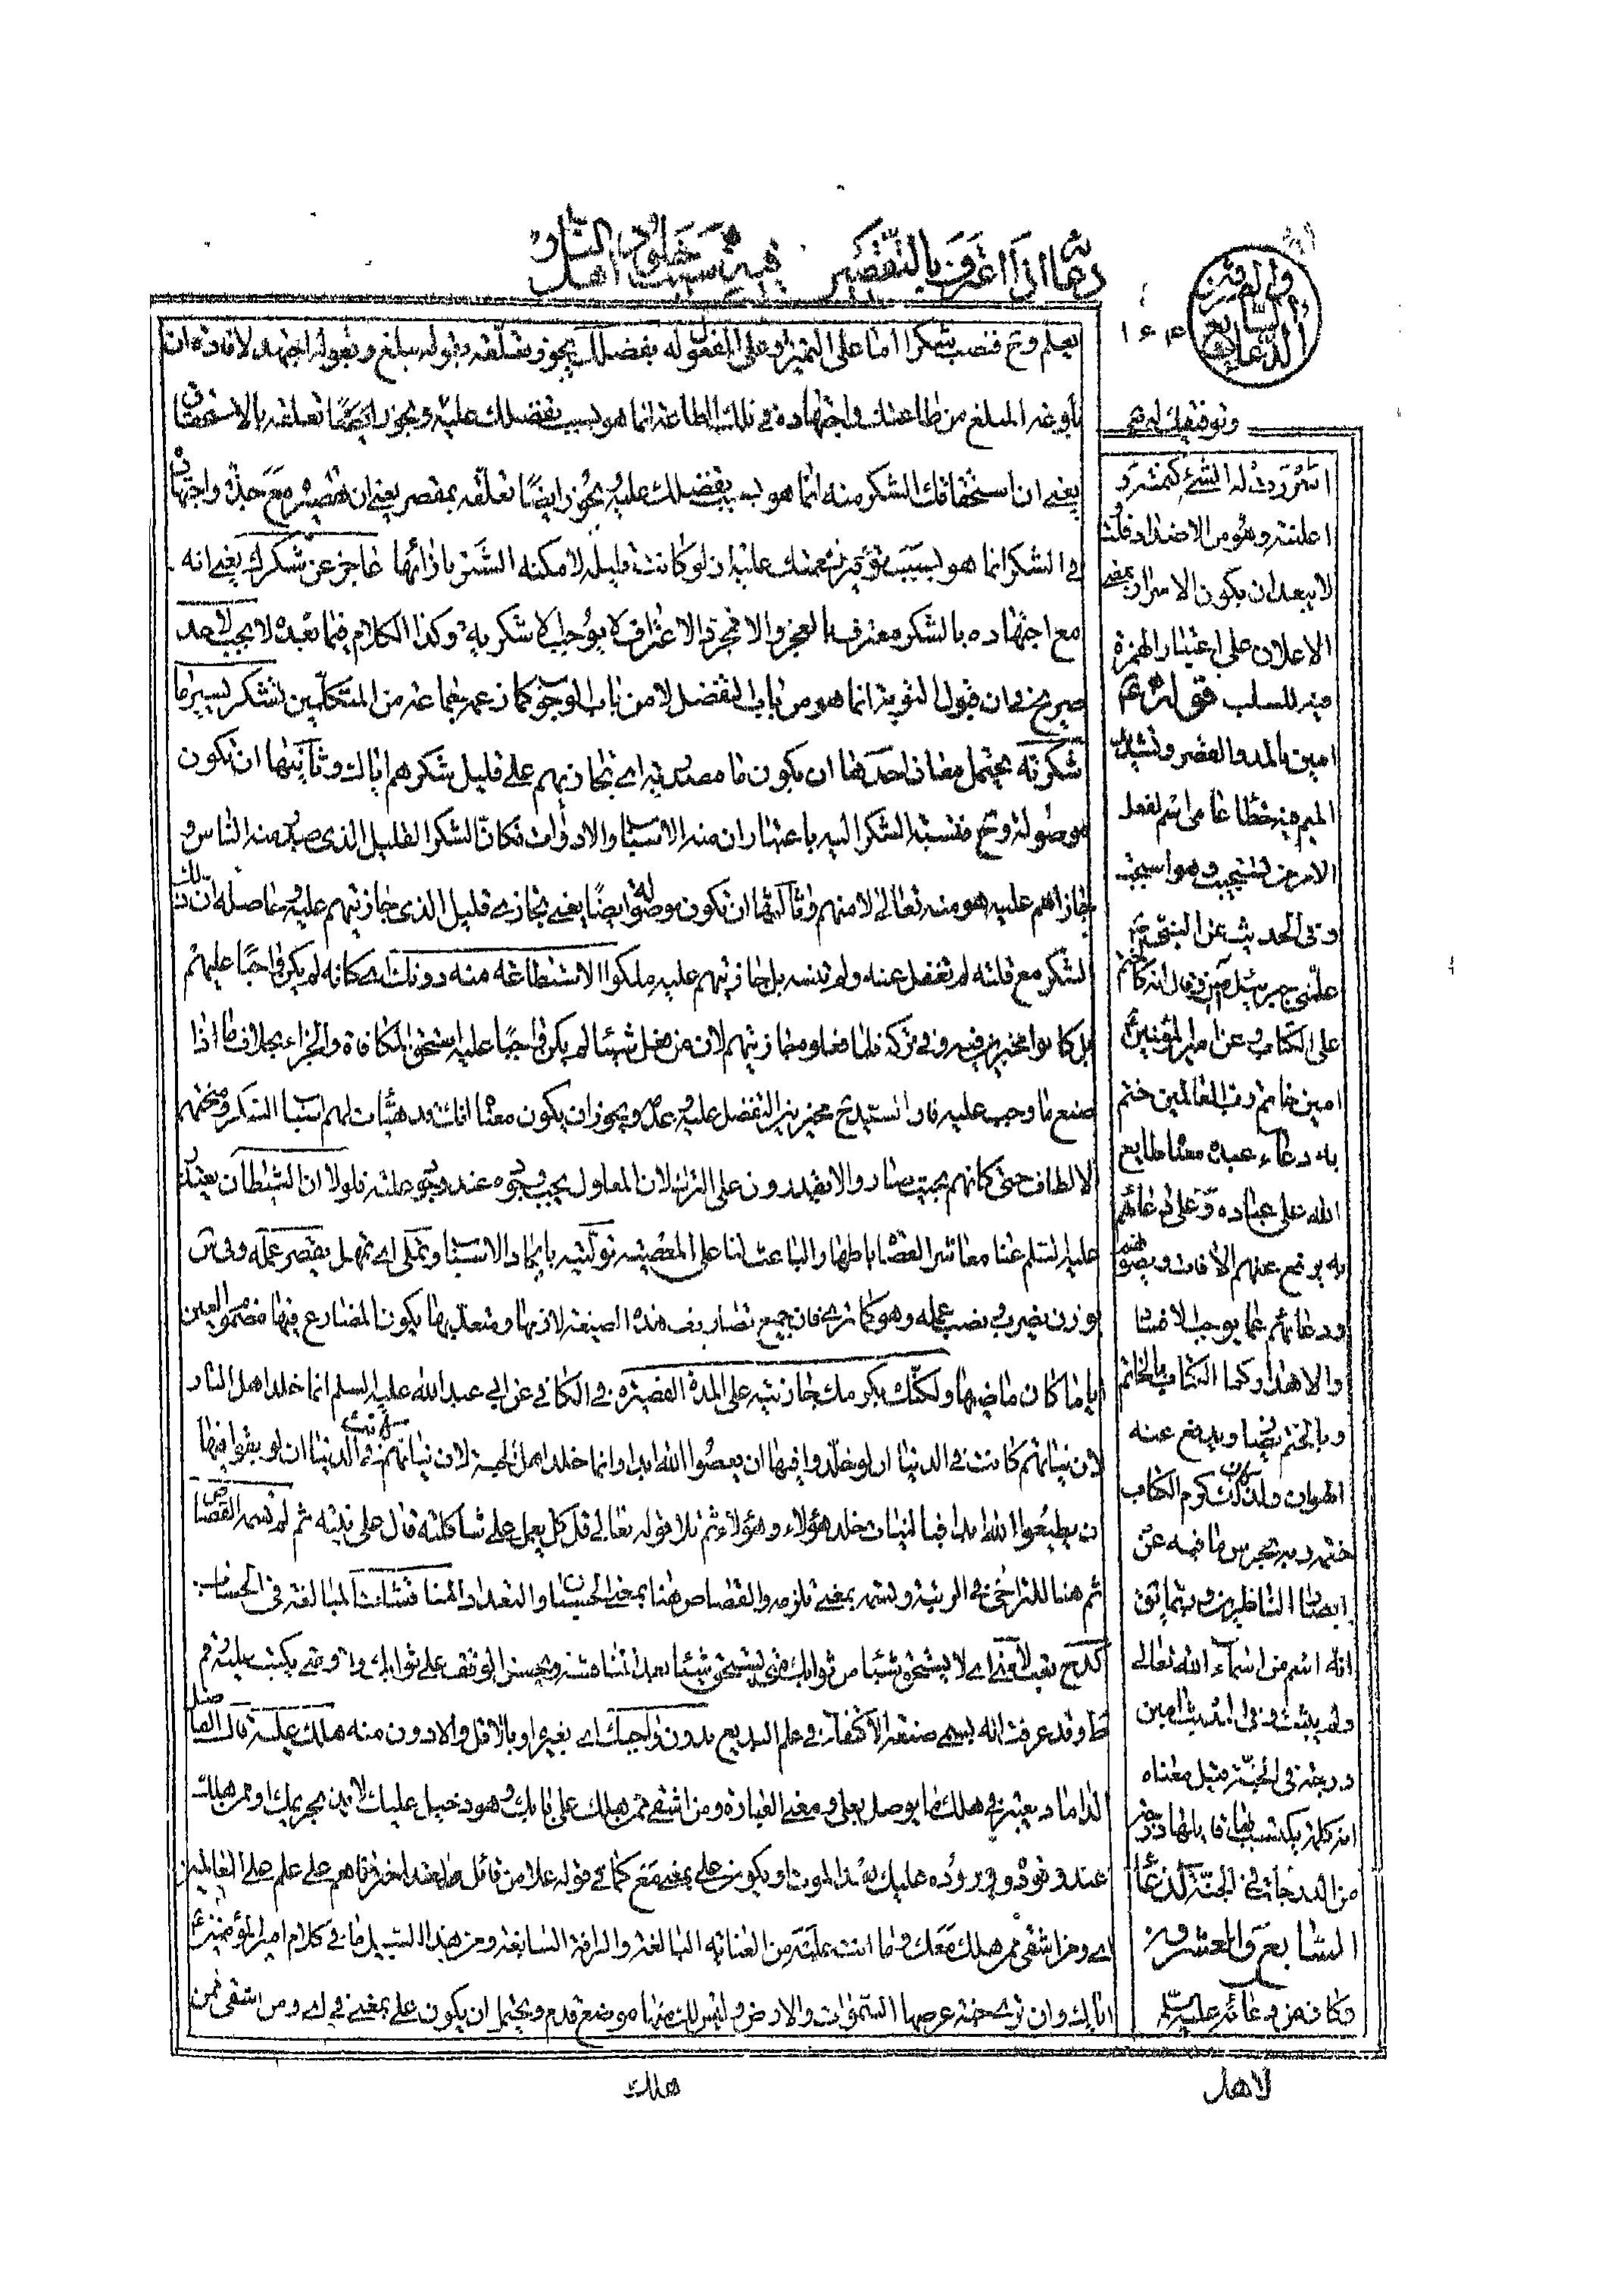 دعائه اذا اعترف بالتقصير
فيه سبب خلود اهل النار
١٦٣
يعلم وح فنصب شكرا اما على التميز او على المفعول له بفضلك يجوز تعلقه بقوله يبلغ وبقوله اجتهد لافادة ان
بلوغه المبلغ من طاعتك واجتهاده في تلك الطاعة انما هو بسبب تفضلك عليه ويجوز ايضا تعلقه بالاستحقاق
يعني ان استحقاقك الشكر منه انما هو بسبب تفضلك عليه ويجوز ايضا تعلقه بمقصر يعني ان تقصيره مع جده واجتهاده
في الشكر انما هو بسبب توفير نعمتك عليه اذ لو كانت قليلة لامكنه الشكر بازائها عاجز عن شكرك يعني انه
مع اجتهاده بالشكر معترف بالعجز والا فمجرد الاعتراف لا يوجب الشكرية وكذا الكلام فيما بعده لا يجب لاحد
صريح في ان قبول التوبة انما هو من باب التفضل لا من باب الوجوب كما زعمه جماعة من المتكلمين تشكر يسير ما
شكرته يحتمل معان احدها ان يكون ما مصدرية اي تجازيهم على قليل شكرهم اياك وثانيها ان تكون
موصولة وح فنسبة الشكر اليه باعتبار ان منه الاسباب والادوات فكان الشكر القليل الذي صدر منه الناس و
جازاهم عليه هو منه تعالى لا منهم وثالثها ان تكون موصولة ايضا يعني تجازي قليل الذي جازيتهم عليه وحاصله ان ذلك
الشكر مع قلته لم تغفل عنه ولم تنسه بل جازيتهم عليه ملكوا الاستطاعة منه دونك اي كانه لم يكن واجبا عليهم
بل كانوا مخيرين فيه وفي تركه فلما فعلوه جازيتهم لان من فعل شيئا لم يكن واجبا عليه استحق المكافاة والجزاء بخلاف ما اذا
صنع ما وجب عليه فان السيد ح مخير بين التفضل عليه وعدمه ويجوز ان يكون معناه انك قد هيئات لهم اسباب الشكر ومنحتهم
الالطاف حتى كانهم بحيث صاروا لا يقدرون على الترك لان المعلول يجب وجوده عند وجود علته فلولا ان الشيطان يعني
عليه السلم عنا معاشر العصاة باطنها والباعث لنا على المعصية توليته بايجاد الاسباب وتملي اي تمهل يقصر عمله وفي س
بوزن يضرب بنصب عمله وهو كما ترى فان جميع تصاريف هذه الصيغة لازمها ومتعديها يكون المضارع فيها مضموم العين
ايا ما كان ماضيها ولكنك بكرمك جازيته على المدة القصيرة في الكافي عن ابي عبد الله عليه السلم انما خلد اهل النار
لان نياتهم كانت في الدنيا ان لو خلدوا فيها ان يعصوا الله ابدا وانما خلد اهل الجنة لان نياتهم كانت في الدنيا ان لو بقوا فيها
ان يطيعوا الله ابدا فبالنيات خلد هؤلاء وهؤلاء ثم تلا قوله تعالى قل كل يعمل على شاكلته قال على نيته ثم لم تسمه القصاص
ثم هنا للتراخي في الرتبة وتسمه بمعنى تلزمه والقصاص هنا بمعنى الحساب والتعداد المناقشات المبالغة في الحساب
كدح تعب لا فمتى اي لا يستحق شيئا من ثوابك فمتى يستحق شيئا بعد مناقشته ويحسن الوقف على ثوابك
ط وقد عرفت انه يسمى صنعة الاكتفاء في علم البديع بدون واجبك اي بغيره او بالاقل والادون منه هلك عليك قال الفاضل
الداماد يعتبر في هلك ما يوصل بعلى ومعنى العبارة ومن اشقى ممن هلك على بابك وهو دخيل عليك لائذ بحريمك او ممن هلك
عند وفوده ووروده عليك هذا الموت او يكون على بمعنى مع كما في قوله علا من قائل ولقد اخترناهم على علم على العالمين
اي ومن اشقى ممن هلك معك وما انت عليه من العناية البالغة والرافة السابغة ومن هذا السبيل ما في كلام امير المؤمنين ع
اياك وان ترى جنة عرضها السموات والارض وليس لك منها موضع قدم ويحتمل ان يكون على بمعنى في اي ومن اشقى ممن
هلك
وتوفيقك لهم
اسررت له الشيء كتمته و
اعلنته وهو من الاضداد قلت
لا يبعد ان يكون الاسرار بمعنى
الاعلان على اعتبار الهمزة
فيه للسلب قوله
امين بالمد والقصر وتشديد
الميم فيه خطا عامي اسم لفعل
الامر من تستجيب وهو استجب
وفي الحديث عن النبي ص
علمني جبرئيل امين وقال انه كالختم
على الكتاب وعن امير المؤمنين ع
امين خاتم رب العالمين ختم
به دعاء عبده معناه طابع
الله على عباده وعلى دعائهم
به يدفع عنهم الافات ويصونهم
ودعائهم عما يوجب الافشاء
والاهدار كما الكتاب بالخاتم
وبالختم يصان ويدفع عنه
الهوان ولذلك كان كرم الكتاب
ختمه وبه يحرس ما فيه عن
ابصار الناظرين وربما قيل
انه اسم من اسماء الله تعالى
ولم يثبت وفي الحديث امين
درجة في الجنة قيل معناه
انه كلمة يكتسب بها قائلها درجة
من الدرجات في الجنة الدعاء
السابع والعشرون
وكان من دعائه عليه السلم
لاهل